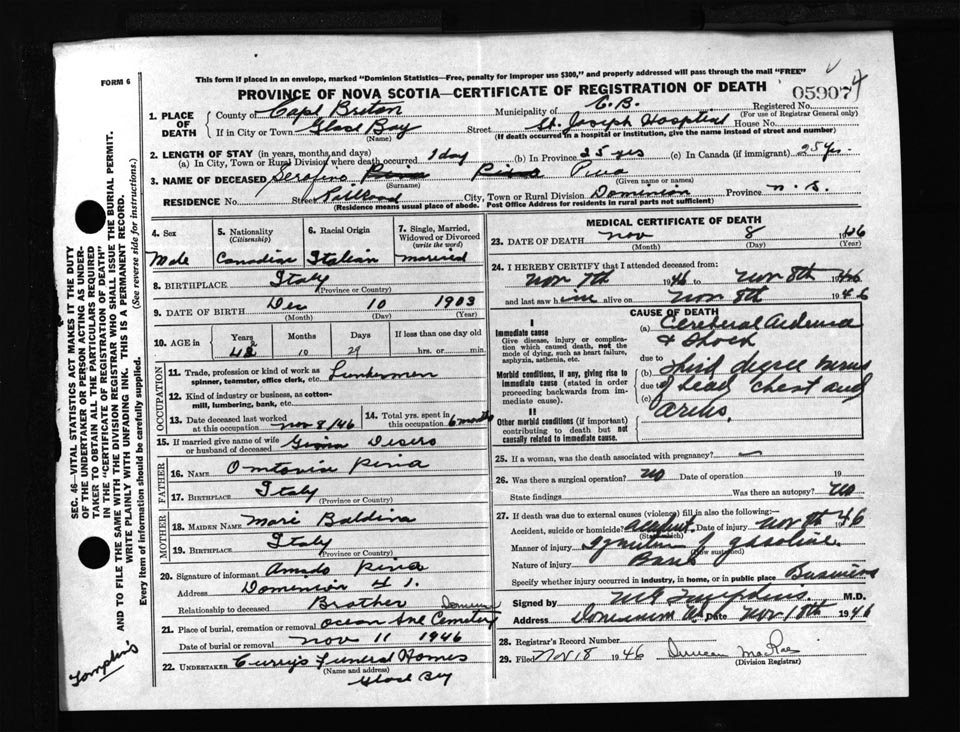 FORM 6
This form if placed in an envelope, marked "Dominion Statistics—Free, penalty for improper use $300," and properly addressed will pass through the mail "FREE"
PROVINCE OF NOVA SCOTIA—CERTIFICATE OF REGISTRATION OF DEATH
059074
1. PLACE OF DEATH
County of Cape Breton Municipality of C.B. Registered No.
(For use of Registrar General only)
If in City or Town Glace Bay Street St. Joseph Hosptial House No.
(Name) (If death occurred in a hospital or institution, give the name instead of street and number)
2. LENGTH OF STAY (in years, months, and days)
(a) In City, Town or Rural Division where death occurred 1 day (b) In Province 25 yrs (c) In Canada (if immigrant) 25 yrs.
3. NAME OF DECEASED Serafino
(Surname) (Given name or names)
RESIDENCE No. Street City, Town or Rural Division Dominion Province N.S.
(Residence means usual place of abode. Post Office Address for residents in rural parts not sufficient)
4. Sex
Male
5. Nationality
(Citizenship)
Canadian
6. Racial Origin
Italian
7. Single, Married, Widowed or Divorced
(write the word)
married
8. BIRTHPLACE Italy
(Province or Country)
9. DATE OF BIRTH Dec 10 1903
(Month) (Day) (Year)
10. AGE Years Months Days If less than one day old
42 10 29 hrs. or min.
OCCUPATION
11. Trade, profession or kind of work as spinner, teamster, office clerk, etc.
12. Kind of industry or business, as cotton-mill, lumbering, bank, etc.
13. Date deceased last worked at this occupation Nov 8/46
14. Total yrs. spent in this occupation 6 months
15. If married give name of wife or husband of deceased
FATHER
16. NAME
17. BIRTHPLACE Italy
(Province or Country)
MOTHER
18. MAIDEN NAME Mari Baldina
19. BIRTHPLACE Italy
(Province or Country)
20. Signature of informant
Address Dominion
Relationship to deceased Brother
21. Place of burial, cremation or removal Ocean Ave Cemetery
Date of burial or removal Nov 11 1946
22. UNDERTAKER Curry's Funeral Homes
(Name and address)
Glace Bay
MEDICAL CERTIFICATE OF DEATH
23. DATE OF DEATH Nov 8 1946
(Month) (Day) (Year)
24. I HEREBY CERTIFY that I attended deceased from:
Nov 7th 1946 to Nov 8th 1946
and last saw him alive on Nov 8th 1946
CAUSE OF DEATH
I
Immediate cause
Give disease, injury or complication which caused death, not the mode of dying, such as heart failure, asphyxia, asthenia, etc.
Morbid conditions, if any, giving rise to immediate cause (stated in order proceeding backwards from immediate cause).
II
Other morbid conditions (if important) contributing to death but not causally related to immediate cause.
(a) Cerebral Aedema
& Shock
due to
(b) third degree burns
due to
(c) of head chest and
arms.
25. If a woman, was the death associated with pregnancy?
26. Was there a surgical operation? no Date of operation 19
State findings Was there an autopsy? no
27. If death was due to external causes (violence) fill in also the following:—
Accident, suicide or homicide? accident Date of injury Nov 7th 1946
(State which)
Manner of injury Ignition of gasoline
(How sustained)
Nature of injury
Specify whether injury occurred in industry, in home, or in public place Business
Signed by M.D.
Address Dominion Date Nov 18th 1946
28. Registrar's Record Number
29. Filed Nov 18 1946 Duncan MacRae
(Division Registrar)
SEC. 46—VITAL STATISTICS ACT MAKES IT THE DUTY OF THE UNDERTAKER OR PERSON ACTING AS UNDERTAKER TO OBTAIN ALL THE PARTICULARS REQUIRED IN THE "CERTIFICATE OF REGISTRATION OF DEATH" AND TO FILE THE SAME WITH THE DIVISION REGISTRAR WHO SHALL ISSUE THE BURIAL PERMIT.
WRITE PLAINLY WITH UNFADING INK. THIS IS A PERMANENT RECORD.
Every item of information should be carefully supplied. (See reverse side for instructions.)
Tompkins